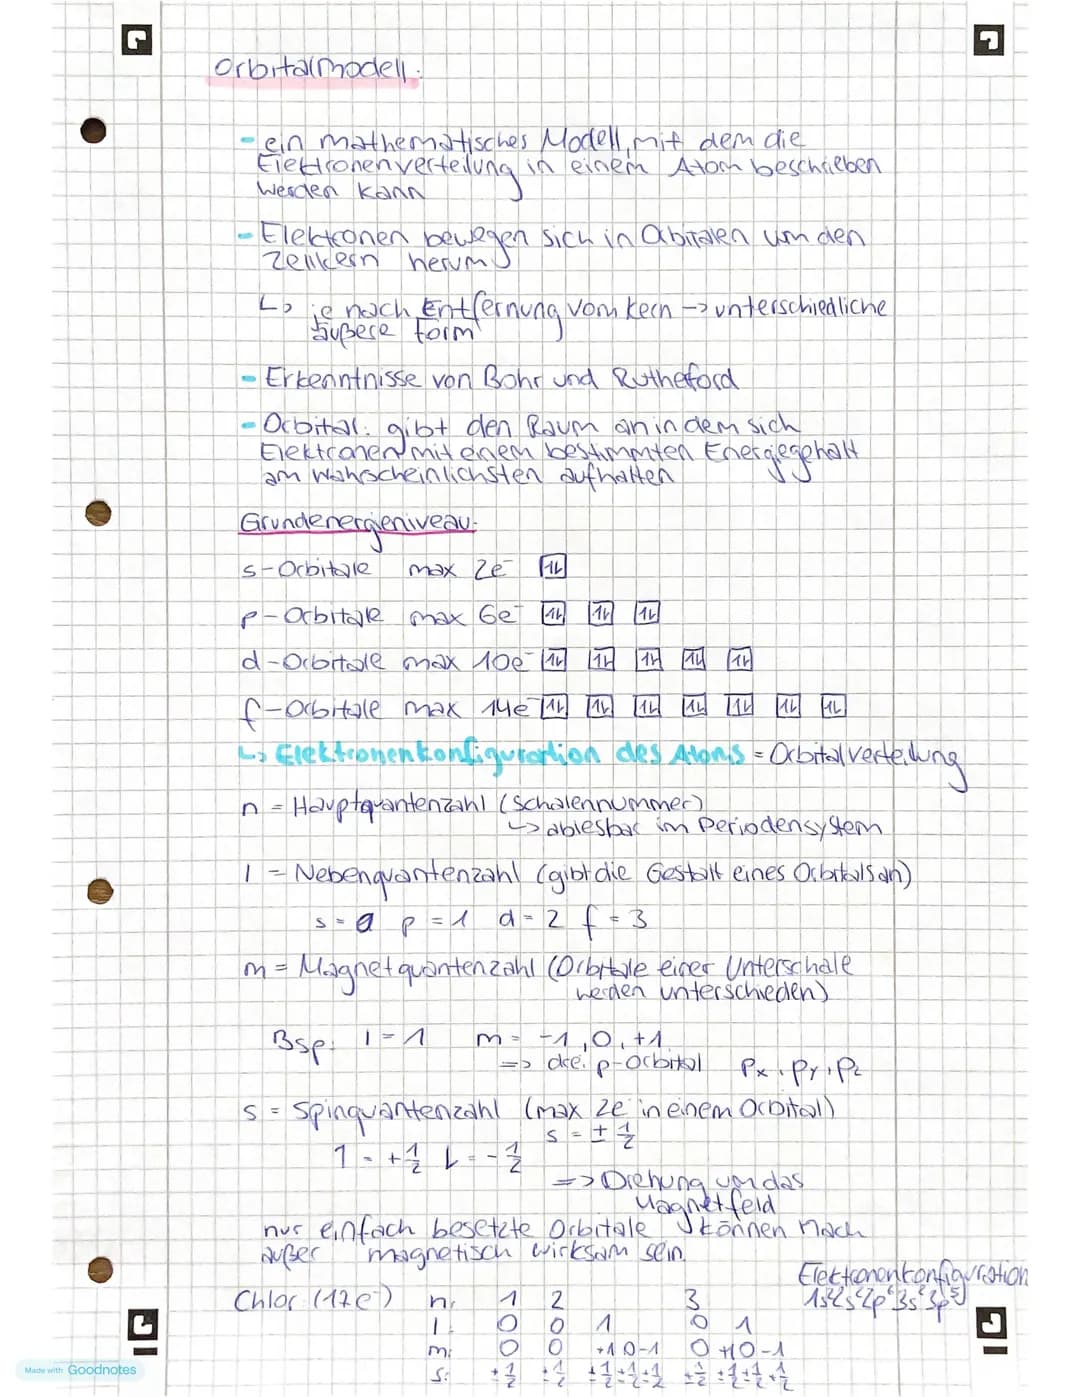 Orbitalmodell:
- ein mathematisches Modell, mit dem die
Elektronenverteilung in einem Atom beschrieben
werden kann
- Elektronen bewegen sich in Orbitalen um den
Zellkern herum
↳ je nach Entfernung vom Kern -> unterschiedliche
äußere Form
- Erkenntnisse von Bohr und Rutheford
- Orbital: gibt den Raum an in dem sich
Elektronen mit einem bestimmten Energiegehalt
am wahrscheinlichsten aufhalten
Grundenergieniveau:
s-Orbitale max 2e⁻ ↿⇂
p-Orbitale max 6e⁻ ↿⇂ ↿⇂ ↿⇂
d-Orbitale max 10e⁻ ↿⇂ ↿⇂ ↿⇂ ↿⇂ ↿⇂
f-Orbitale max 14e⁻ ↿⇂ ↿⇂ ↿⇂ ↿⇂ ↿⇂ ↿⇂ ↿⇂
↳ Elektronenkonfiguration des Atoms = Orbitalverteilung
n = Hauptquantenzahl (Schalennummer)
↳ ablesbar im Periodensystem
l = Nebenquantenzahl (gibt die Gestalt eines Orbitals an)
s = 0 p = 1 d = 2 f = 3
m = Magnetquantenzahl (Orbitale einer Unterschale
werden unterschieden)
Bsp: l = 1 m = -1, 0, +1
=> drei p-Orbital px, py, pz
s = Spinquantenzahl (max 2e⁻ in einem Orbital)
s = ± 1/2
↿ = + 1/2 ⇂ = - 1/2
=> Drehung um das
Magnetfeld
nur einfach besetzte Orbitale können nach
außer magnetisch wirksam sein.
Elektronenkonfiguration
Chlor (17e⁻) n: 1 2 3 1s²2s²2p⁶3s²3p⁵
l: 0 0 1 0 1
m: 0 0 +1 0 -1 0 +1 0 -1
s: ±1/2 ±1/2 ±1/2 ±1/2 ±1/2 ±1/2 ±1/2 ±1/2 +1/2
Made with Goodnotes